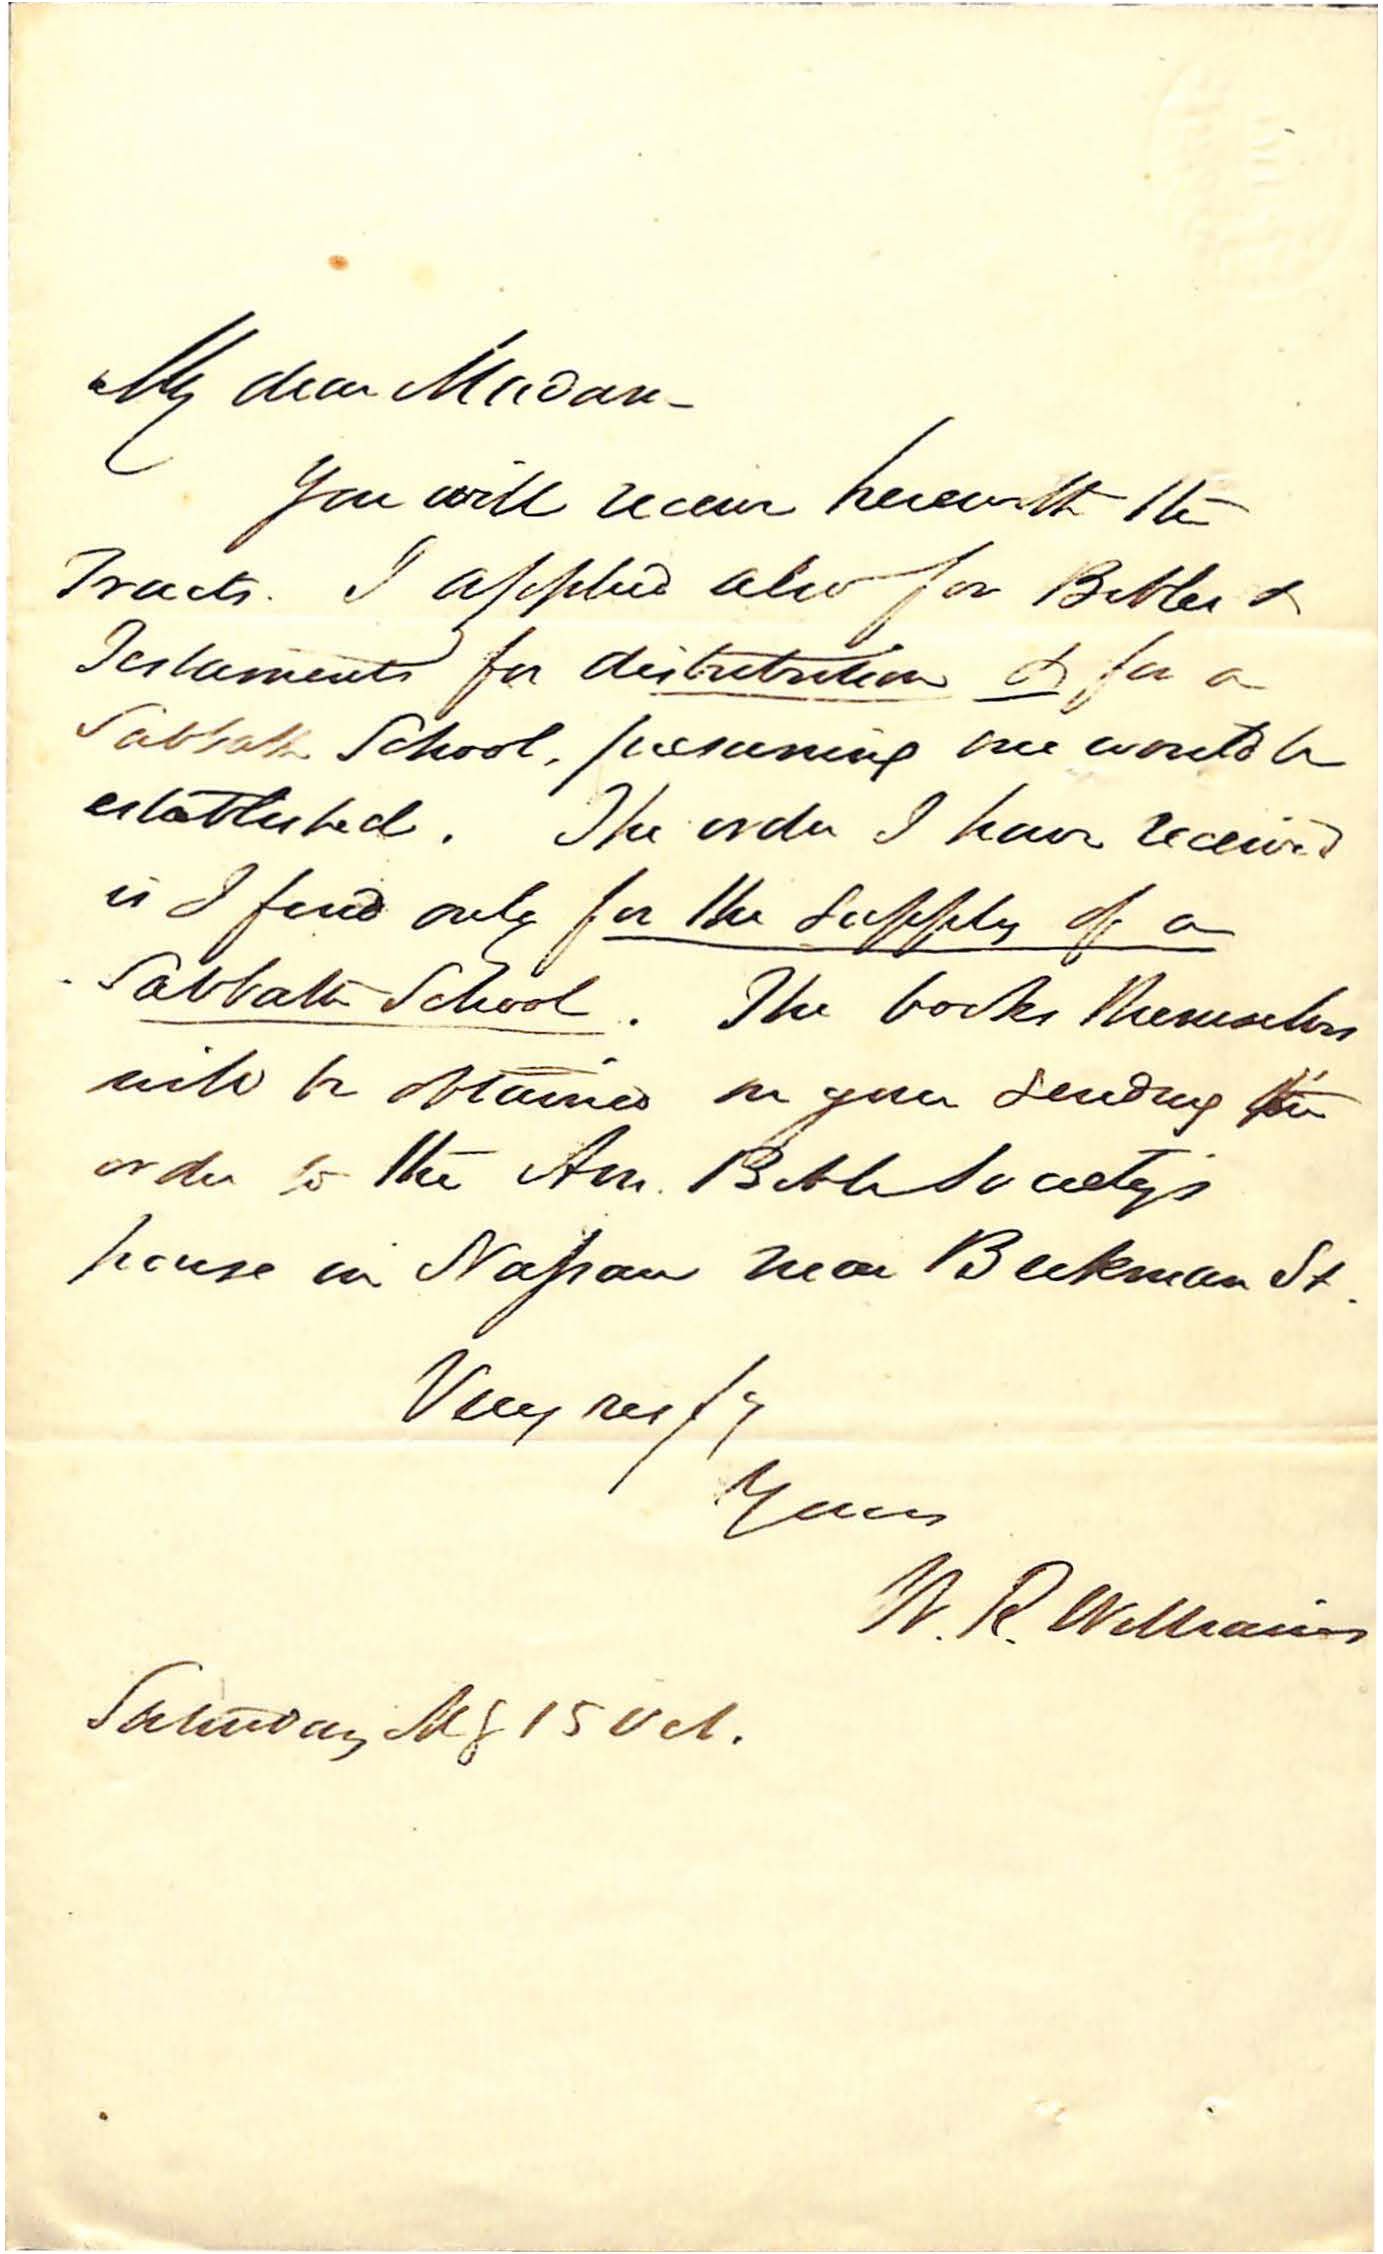 My dear Madam -
You will receive herewith the
Tracts. I applied also for Bibles &
Testaments for distribution & for a
Sabbath School, presuming one would be
established. The order I have received
is I find only for the supply of a
Sabbath School. The books themselves
will be obtained on your sending the
order to the Am. Bible Society's
house in Nassau near Beekman St.
Very resfy
Yours
W. R. Williams
Saturday Mg 15 Oct.